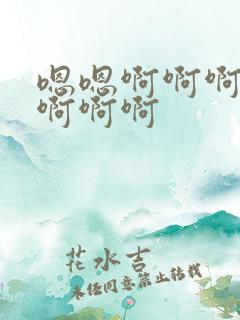 嗯嗯啊啊啊
啊啊啊
花水吉
未经同意禁止转载